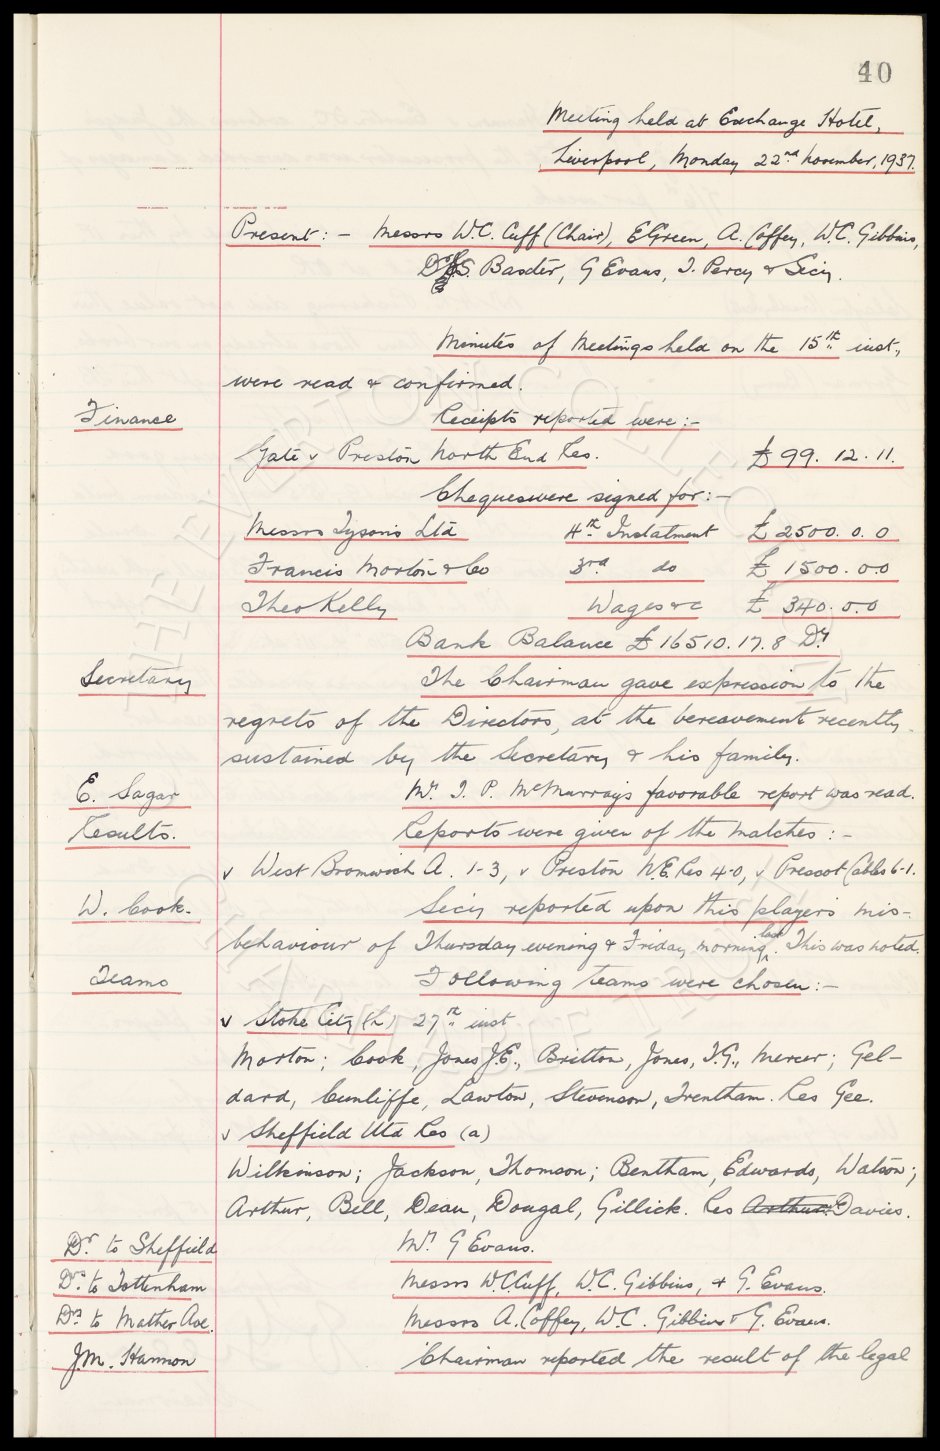 40
Meeting held at Exchange Hotel,
Liverpool, Monday 22nd November, 1937.
Present: - Messrs W.C. Cuff (Chair), E Green, A. Coffey, W.C. Gibbins,
Dr. S. Baxter, G Evans, T. Percy & Secy.
Minutes of Meetings held on the 15th inst,
were read & confirmed.
Finance Receipts reported were:-
Gate v Preston North End Res. £99. 12. 11.
Cheques were signed for:-
Messrs Tysons Ltd 4th Instalment £2500. 0. 0
Francis Morton & Co 3rd do £1500. 0. 0
Theo Kelly Wages &c £340. 0. 0
Bank Balance £16510. 17. 8 Dr
Secretary The Chairman gave expression to the
regrets of the Directors, at the bereavement recently
sustained by the Secretary & his family.
E. Sagar Mr. T. P. McMurray's favorable report was read.
Results. Reports were given of the matches:-
v West Bromwich A. 1-3, v Preston N.E. Res 4-0, v Prescot Cables 6-1.
W. Cook. Secy reported upon this player's mis-
behaviour of Thursday evening & Friday morning last. This was noted.
Teams Following teams were chosen:-
v Stoke City (h) 27th inst
Morton; Cook, Jones J.E., Britton, Jones, T.G., Mercer; Gel-
dard, Cunliffe, Lawton, Stevenson, Trentham. Res Gee.
v Sheffield Utd Res (a)
Wilkinson; Jackson, Thomson; Bentham, Edwards, Watson;
Arthur, Bell, Dean, Dougal, Gillick. Res Arthur. Davies.
Dr. to Sheffield Mr. G Evans.
Drs. to Tottenham Messrs W.C. Cuff, W.C. Gibbins, & G. Evans.
Drs to Mather Ave. Messrs A. Coffey, W.C. Gibbins & G. Evans.
J.M. Hannon Chairman reported the result of the legal
THE EVERTON COLLECTION
CHARITABLE TRUST